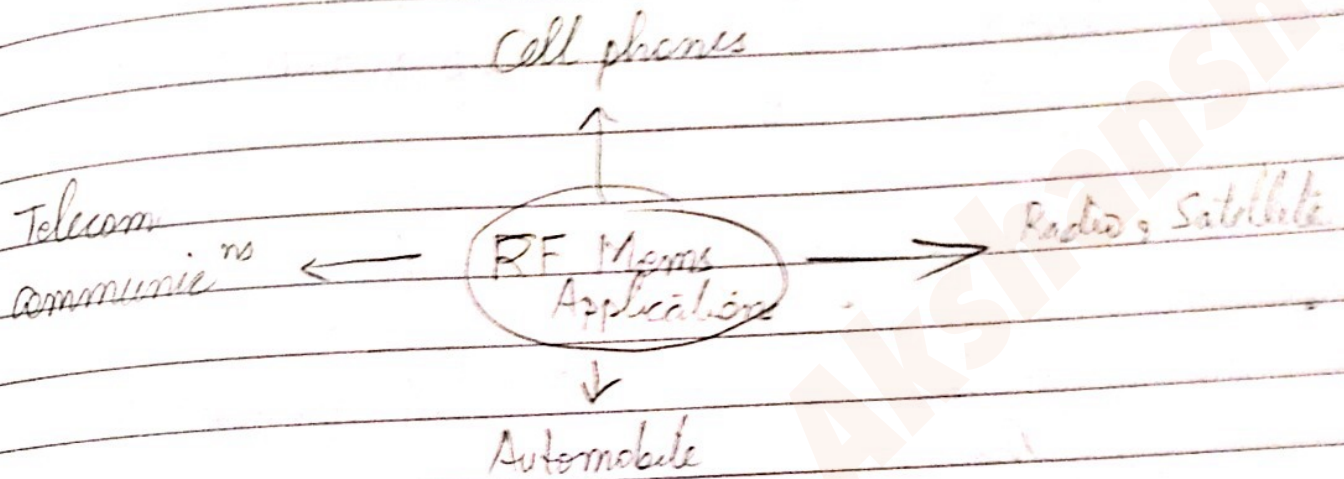 Cell phones
Telecom
communic^ns
RF Mems
Applications
Radio, Satellite
Automobile
Akshansh